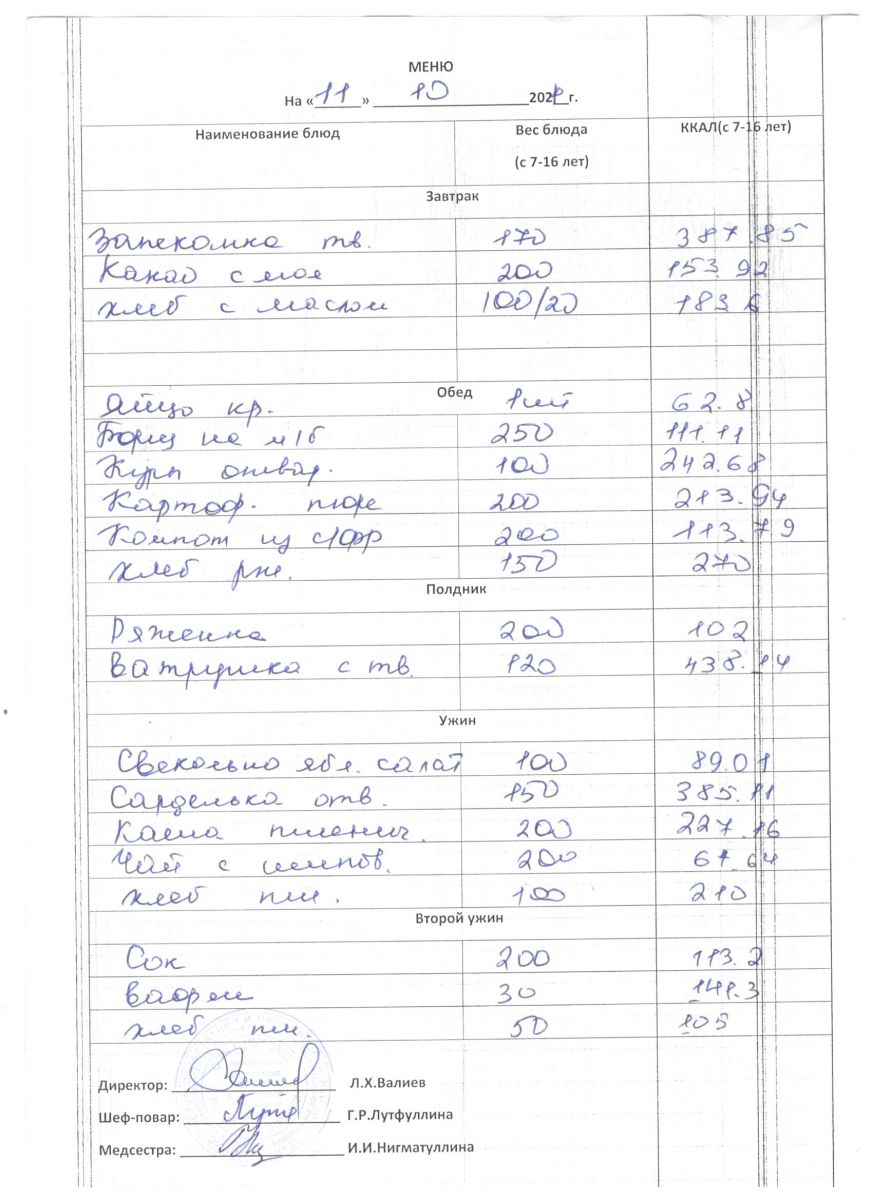 МЕНЮ
На «11» 10 2021г.
Наименование блюд Вес блюда (с 7-16 лет) ККАЛ(с 7-16 лет)
Завтрак
Запеканка тв. 170 387.85
Какао с мол 200 153.92
хлеб с маслом 100/20 183.6
Обед
Яйцо кр. 1шт 62.8
Борщ на м/б 250 111.11
Куры отвар. 100 242.68
Картоф. пюре 200 213.94
Компот из с/фр 200 113.79
хлеб рж. 150 270
Полдник
Ряженка 200 102
Ватрушка с тв. 120 438.14
Ужин
Свекольно ябл. салат 100 89.01
Сарделька отв. 150 385.11
Каша пшенич. 200 227.16
Чай с шипов. 200 61.64
хлеб пш. 100 210
Второй ужин
Сок 200 113.2
вафли 30 141.3
хлеб пш. 50 105
Директор: Л.Х.Валиев
Шеф-повар: Г.Р.Лутфуллина
Медсестра: И.И.Нигматуллина